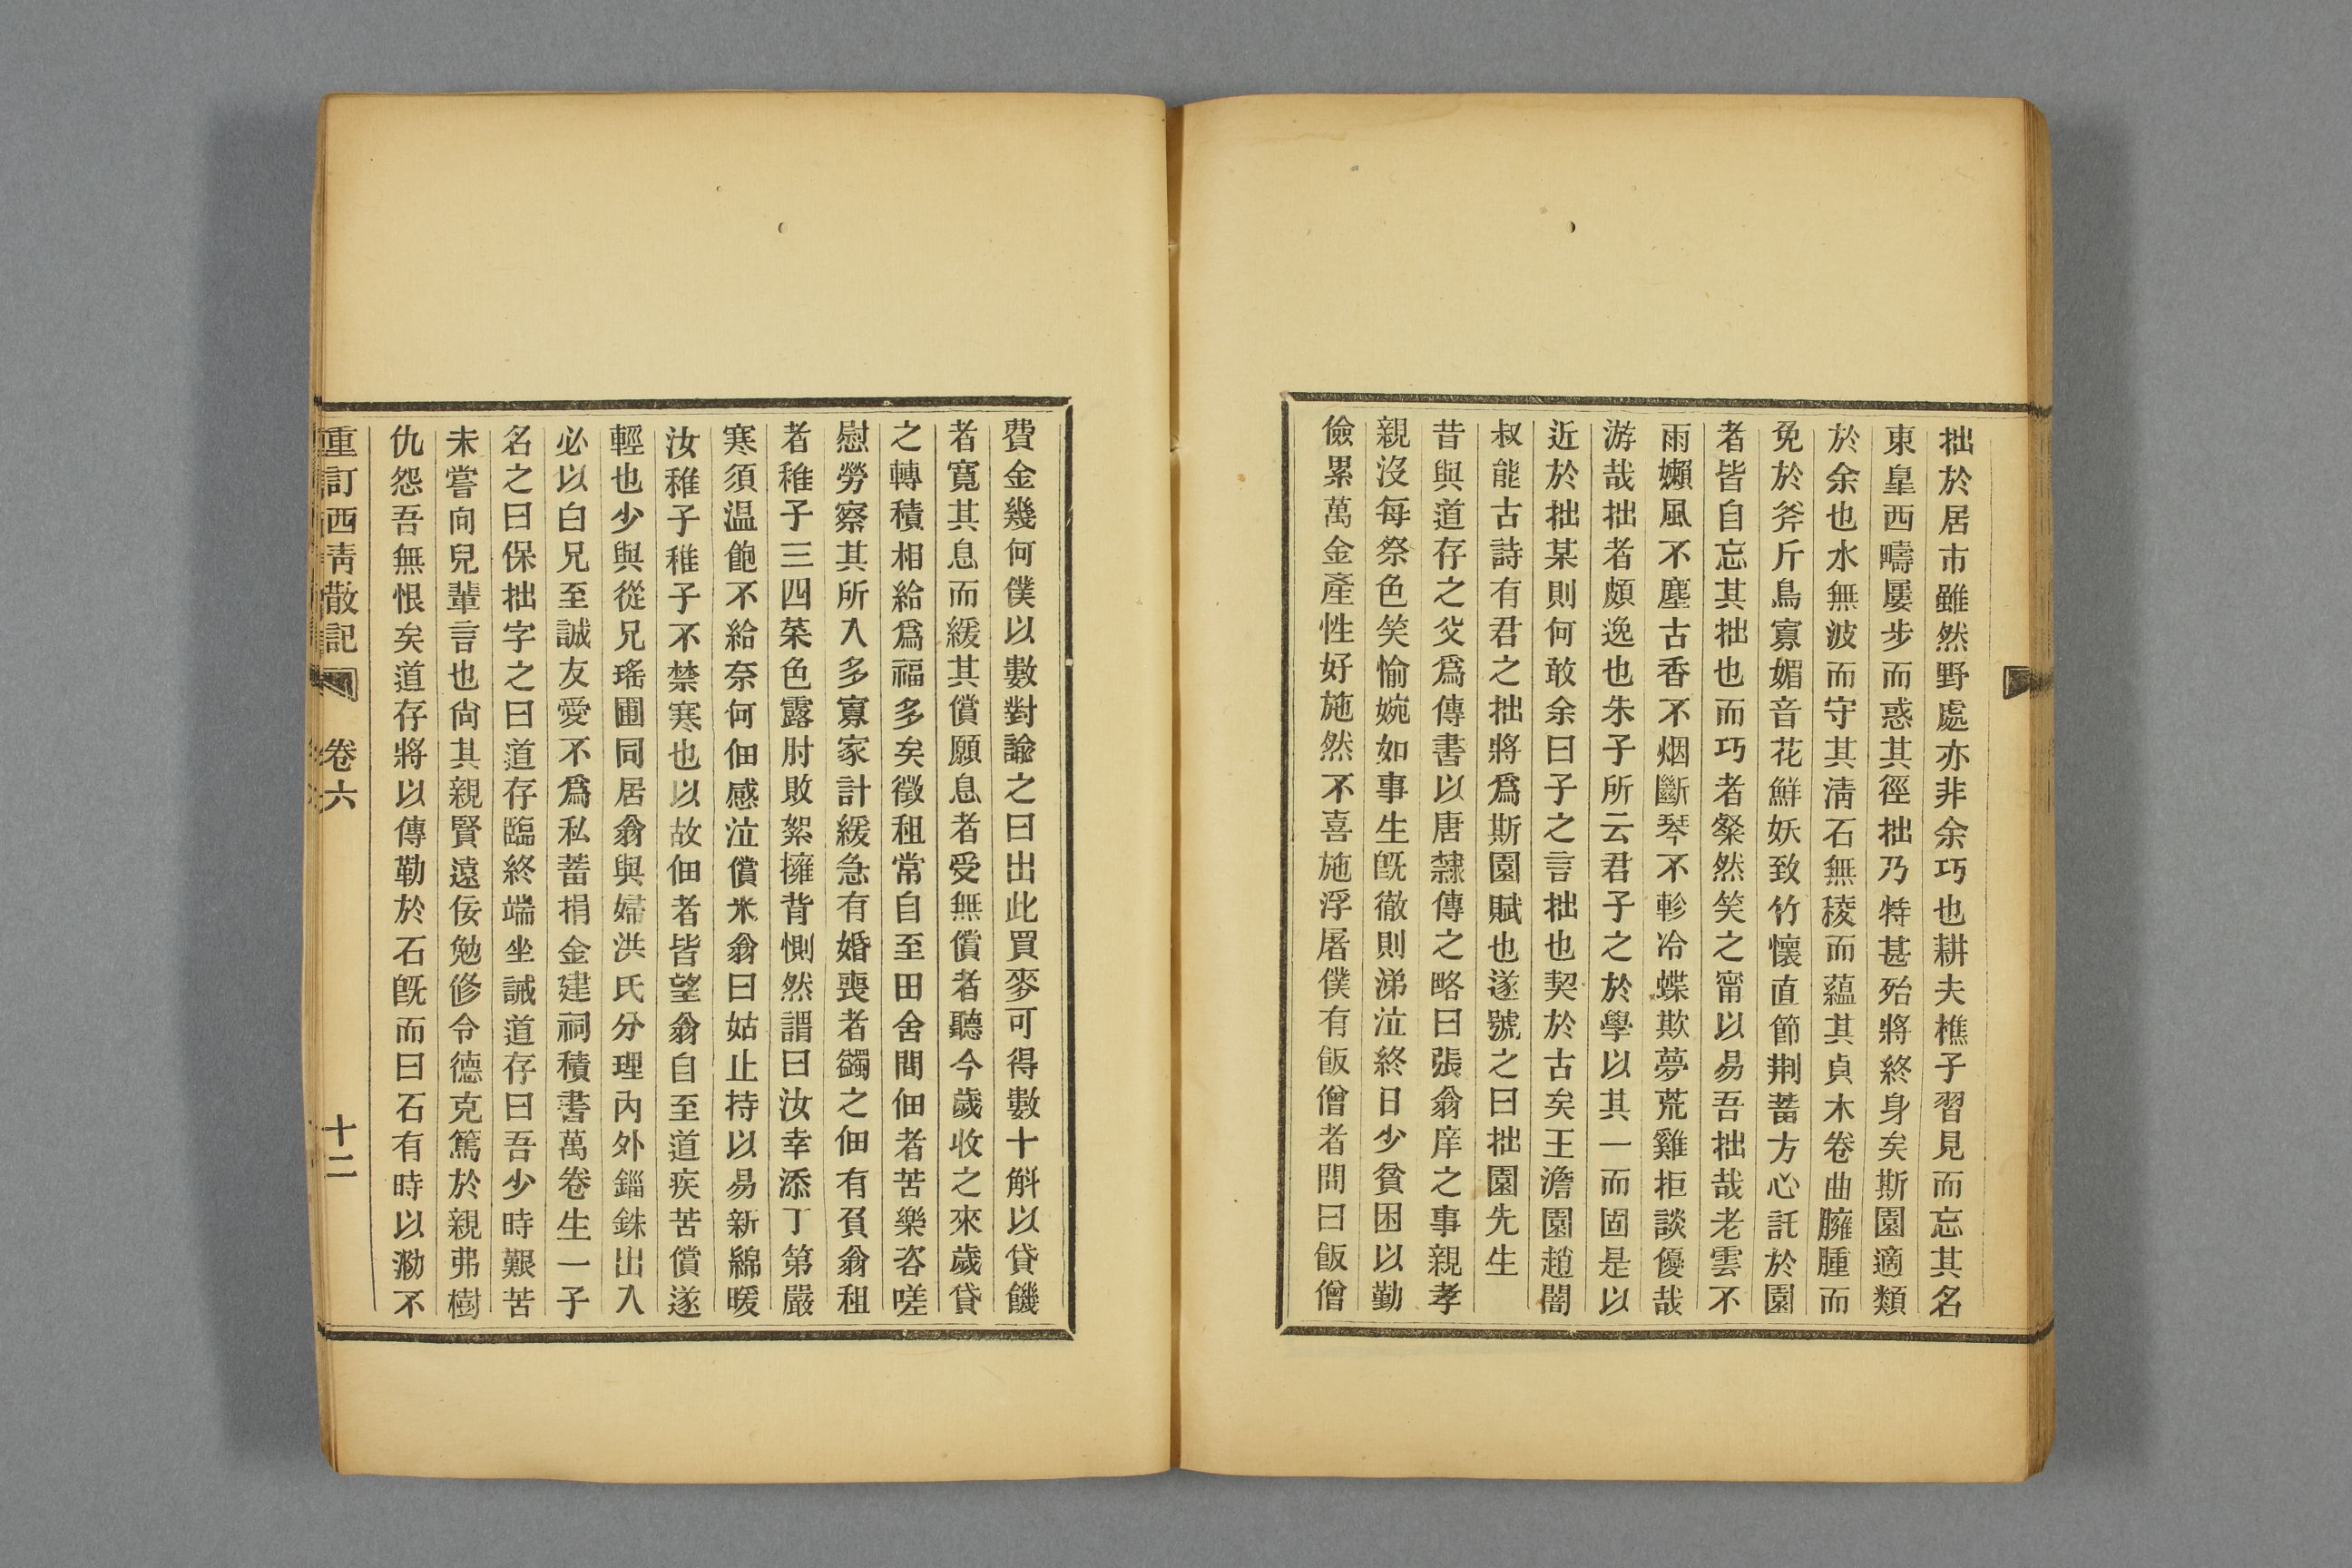 拙於居市雖然野處亦非余巧也耕夫樵子習見而忘其名
東皐西疇屢步而惑其徑拙乃特甚殆將終身矣斯園適類
於余也水無波而守其淸石無稜而蘊其貞木卷曲臃腫而
免於斧斤鳥寡媚音花鮮妖致竹懷直節荆蓄方心託於園
者皆自忘其拙也而巧者粲然笑之甯以易吾拙哉老雲不
雨嬾風不塵古香不烟斷琴不軫冷蝶欺夢荒雞拒談優哉
游哉拙者頗逸也朱子所云君子之於學以其一而固是以
近於拙某則何敢余曰子之言拙也契於古矣王澹園趙闇
叔能古詩有君之拙將爲斯園賦也遂號之曰拙園先生
昔與道存之父爲傳書以唐隸傳之略曰張翁庠之事親孝
親沒每祭色笑愉婉如事生旣徹則涕泣終日少貧困以勤
儉累萬金產性好施然不喜施浮屠僕有飯僧者問曰飯僧
費金幾何僕以數對諭之曰出此買麥可得數十斛以貸饑
者寬其息而緩其償願息者受無償者聽今歲收之來歲貸
之轉積相給爲福多矣徵租常自至田舍問佃者苦樂咨嗟
慰勞察其所入多寡家計緩急有婚喪者蠲之佃有負翁租
者稚子三四菜色露肘敗絮擁背惻然謂曰汝幸添丁第嚴
寒須温飽不給奈何佃感泣償米翁曰姑止持以易新綿暖
汝稚子稚子不禁寒也以故佃者皆望翁自至道疾苦償遂
輕也少與從兄瑤圃同居翁與婦洪氏分理內外錙銖出入
必以白兄至誠友愛不爲私蓄捐金建祠積書萬卷生一子
名之曰保拙字之曰道存臨終端坐誡道存曰吾少時艱苦
未嘗向兒輩言也尙其親賢遠佞勉修令德克篤於親弗樹
仇怨吾無恨矣道存將以傳勒於石旣而曰石有時以泐不
重訂西靑散記 卷六 十二